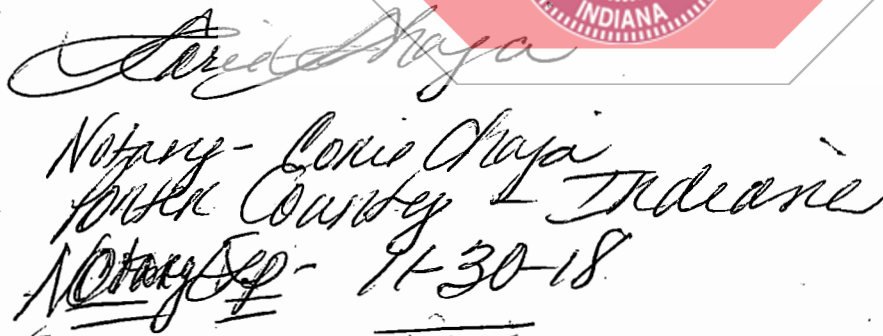 INDIANA
Corie Chaja
Notary - Corie Chaja
Porter County - Indiana
Notary Exp - 11-30-18